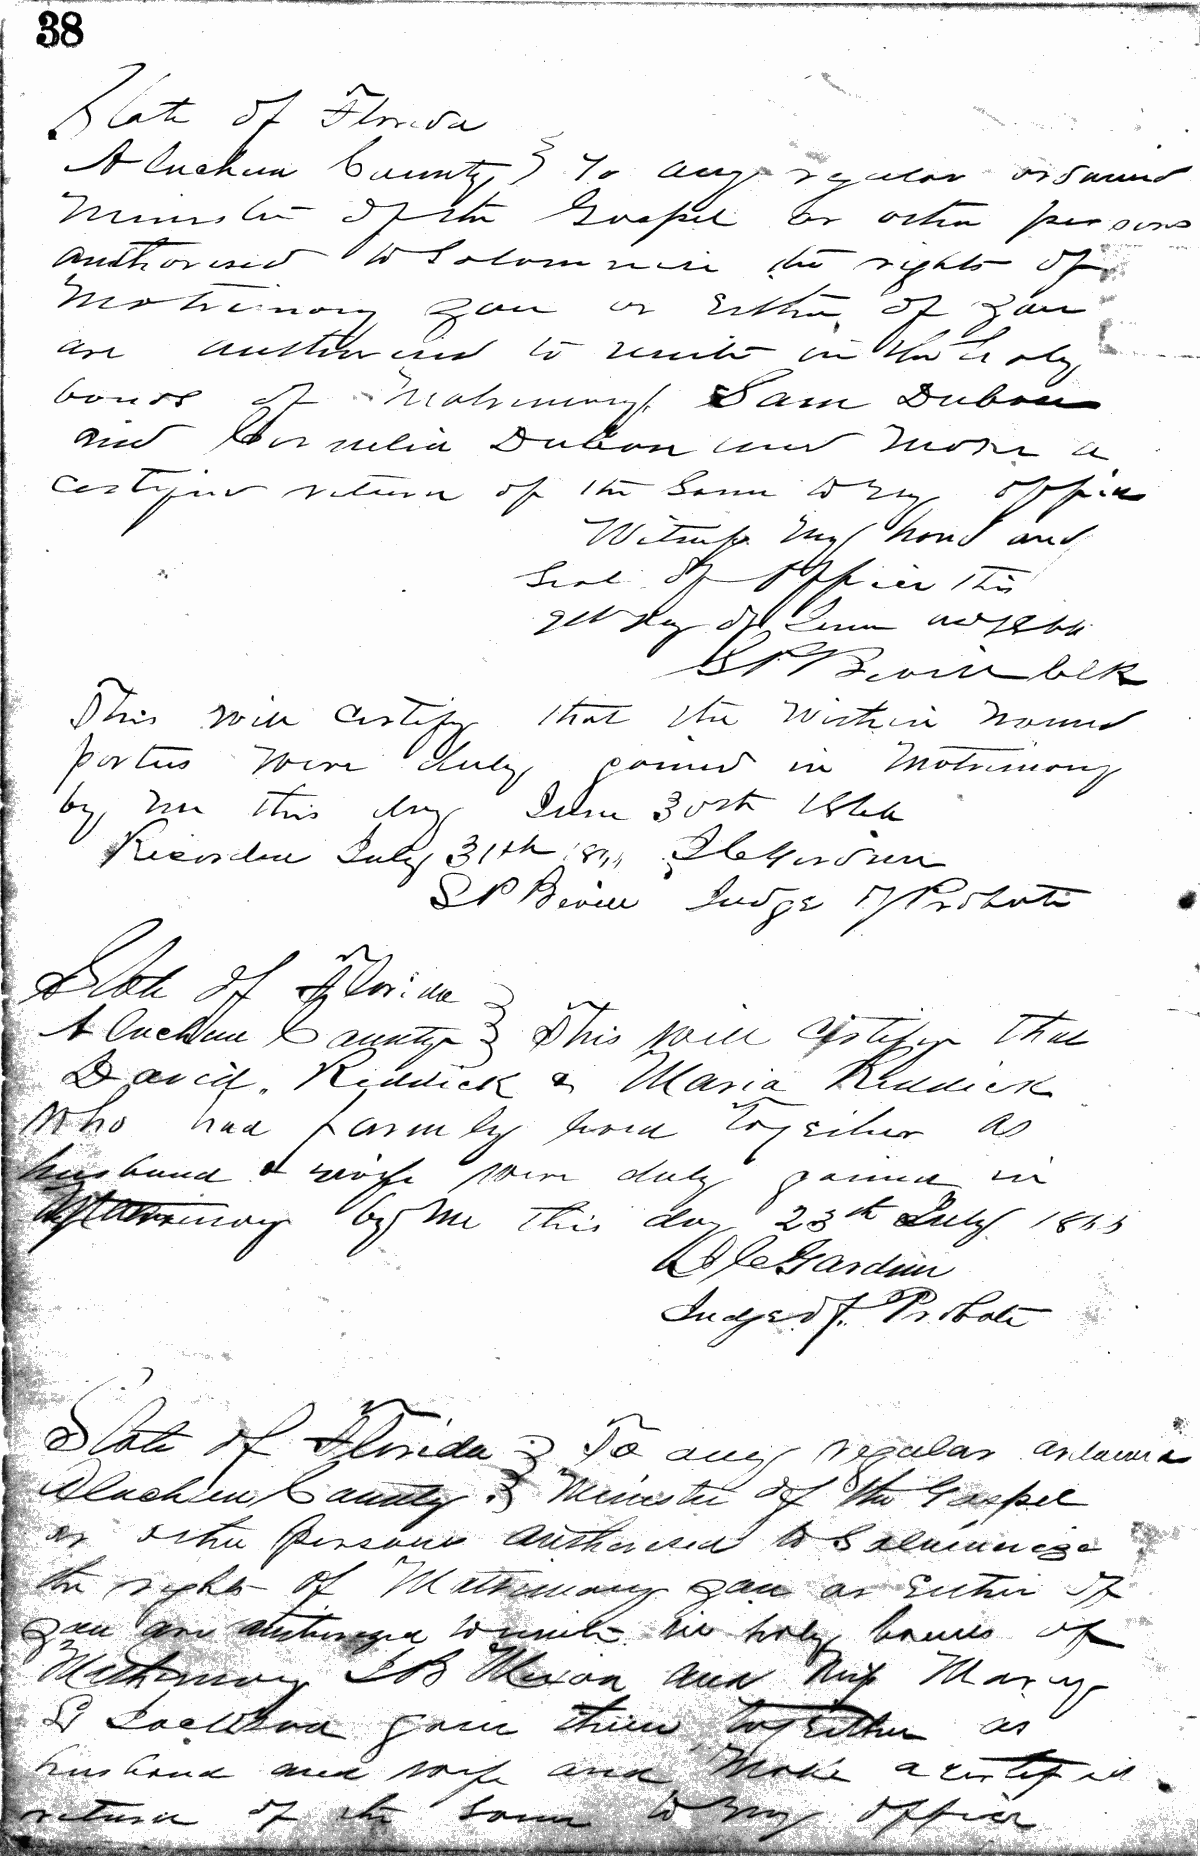 38
State of Florida
Alachua County } To any regular ordained
Minister of the Gospel or other persons
authorised to Solomnise the rights of
Matrimony you or Either of you
are authorised to unite in the holy
bonds of Matrimony Sam Dubose
and Cornelia Dubose and Make a
certified return of the Same to my office
Witness my hand and
Seal of office this
day of June AD 1866
S P Bevill Clk
This will certify that the Within named
parties were duly joined in Matrimony
by me this day June 30th 1866
Recorded July 31th 1866
S P Bevill Judge of Probate
State of Florida }
Alachua County } This will certify that
David Riddick & Maria Riddick
Who had formly lived together as
husband & wife were duly joined in
Matrimony by Me this day 23th July 1866
Judge of Probate
State of Florida } To any regular ordained
Alachua County } Minister of the Gospel
or other persons authorised to Solemnize
the rights of Matrimony you or Either of
you are authorized to unite in holy bonds of
Matrimony J B Mixon and Miss Marcy
join them together as
husband and wife and Make a certified
return of the Same to my office